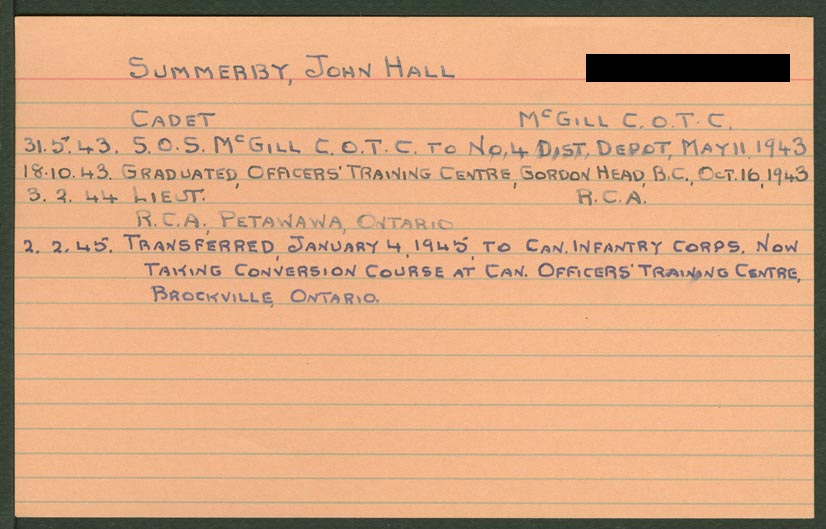 SUMMERBY, JOHN HALL
CADET McGILL C.O.T.C.
31.5.43. S.O.S. McGILL C.O.T.C. TO No.4 DIST. DEPOT, MAY 11, 1943
18.10.43. GRADUATED, OFFICERS' TRAINING CENTRE, GORDON HEAD, B.C., OCT. 16, 1943
3. 2. 44 LIEUT. R.C.A.
R.C.A., PETAWAWA, ONTARIO
2. 2. 45. TRANSFERRED, JANUARY 4, 1945, TO CAN. INFANTRY CORPS. NOW
TAKING CONVERSION COURSE AT CAN. OFFICERS' TRAINING CENTRE,
BROCKVILLE, ONTARIO.